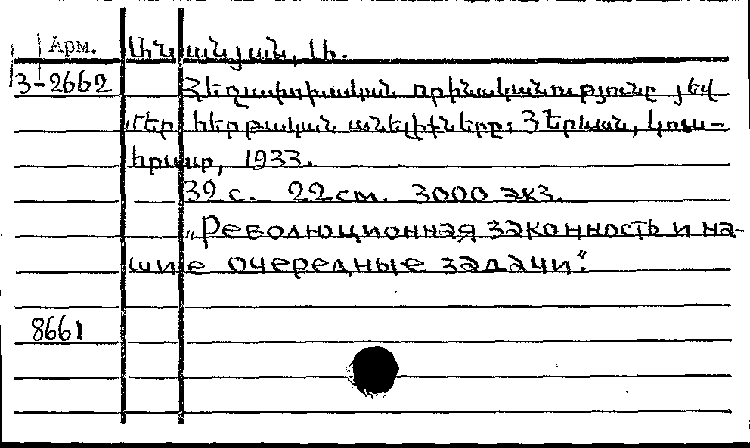 Арм.
3-2662
Հեղափոխական որինականությունը յեվ
մեր հերթական անելիքները: Յերևան, կուս-
հրատ, 1933.
39 с. 22 см. 3000 экз.
„Революционная законность и на-
шие очередные задачи".
8661